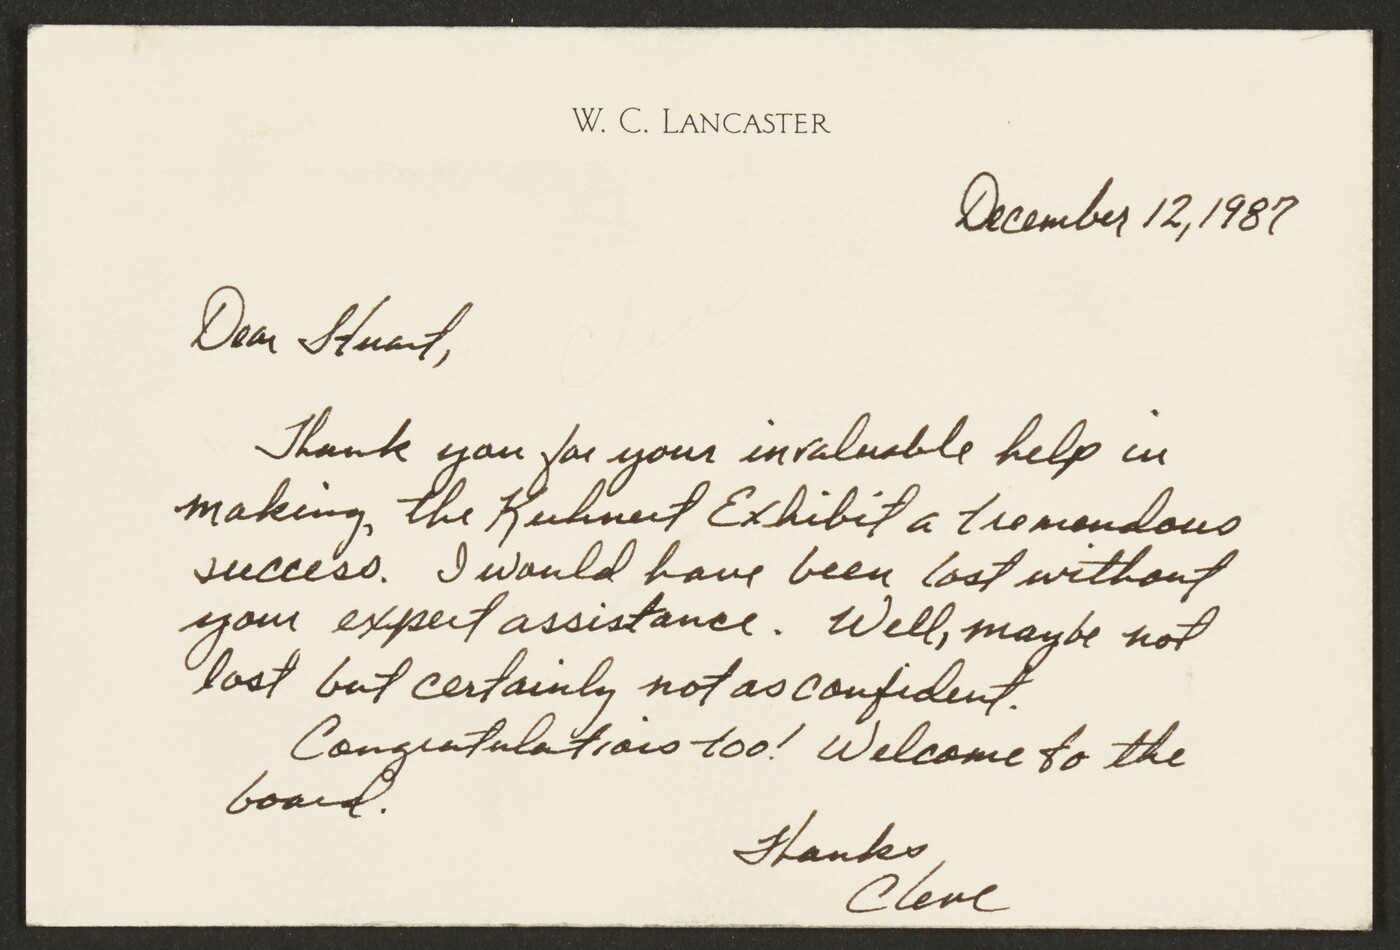 W. C. LANCASTER
December 12, 1987
Dear Stuart,
Thank you for your invaluable help in
making the Kuhnert Exhibit a tremendous
success. I would have been lost without
your expert assistance. Well, maybe not
lost but certainly not as confident.
Congratulations too! Welcome to the
board.
Thanks
Cleve